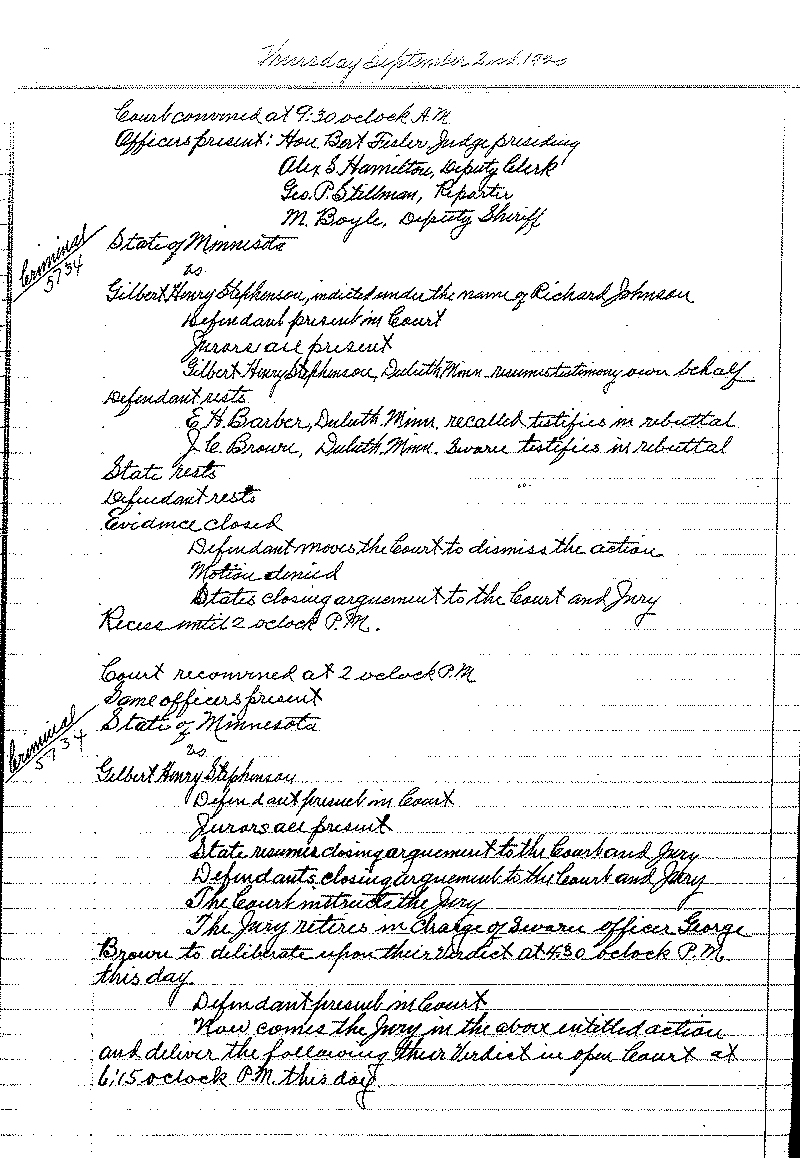 Thursday September 2nd. 1920
Court convened at 9:30 oclock A.M.
Officers present: Hon Bert Fesler Judge presiding
Alex S Hamilton, Deputy Clerk
Geo. P. Stillman, Reporter
M. Boyle, Deputy Sheriff
Criminal
5734
State of Minnesota
vs.
Gilbert Henry Stephenson, indicted under the name of Richard Johnson
Defendant present in Court
Jurors all present
Gilbert Henry Stephenson, Duluth Minn. resumes testimony own behalf
Defendant rests
E. H. Barber, Duluth. Minn. recalled testifies in rebuttal
J. C. Brown, Duluth. Minn. Sworn testifies in rebuttal
State rests
Defendant rests
Evidence closed
Defendant moves the Court to dismiss the action
Motion denied
States closing arguement to the Court and Jury
Recess until 2 oclock P.M.
Court reconvined at 2 oclock P.M
Same officers present
Criminal
5734
State of Minnesota
vs
Gilbert Henry Stephenson
Defendant present in Court
Jurors all present
State resumes closing arguement to the Court and Jury
Defendants closing arguement to the Court and Jury
The Court instructs the Jury
The Jury retires in charge of Sworn officer George
Brown to deliberate upon their Verdict at 4:30 oclock P.M.
this day.
Defendant present in Court
Now comes the Jury in the above entitled action
and deliver the following their Verdict in open Court at
6:15 oclock P.M. this day.